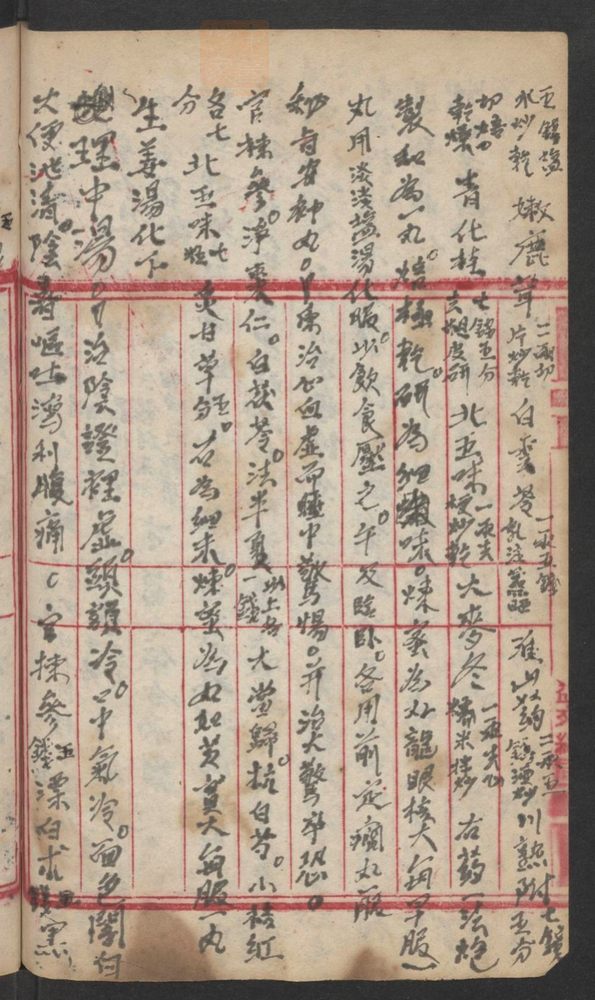 五錢塩水炒乾 嫩鹿茸二兩切片炒乾 白雲苓一兩五錢乳汁蒸晒 淮山藥二兩五錢 川熟附七錢五分
切焙乾燥 青化桂七錢五分去粗皮研 北五味一兩去梗炒乾 大麥冬一兩去心糯米拌炒 右藥一法炮
製和為一丸。焙極乾研為細。煉蜜為丸龍眼核大每早服一
丸用淡淡塩湯化服。以飲食壓之。午及臨臥。各用前定癇丸服
安神丸。治心血虛而睡中驚惕。并治大驚卒恐。
官揀參。淨棗仁。白茯苓。法半夏以上各一錢 大當歸。杭白芍。小桔紅
各七分 北五味 炙甘草。右為細末煉蜜為丸如芡實大每服一丸
生姜湯化下
理中湯。治陰證裡虛。頭額冷。口中氣冷。面色闇
大便泄瀉。陰毒嘔吐瀉利腹痛。官揀參 漂白朮